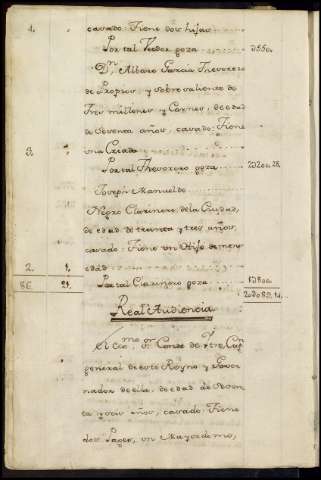 4. casado. Tiene dos hijas
Por tal Veedor goza D550.
Dn. Albaro Garcia Thesorero
de Propios, y sobresaliente de
Tres millones y Carnes, de edad
de sesenta años, casado. Tiene
3. una Criada
Por tal Thesorero goza 2D200.28.
Joseph Manuel de
Negro Clarinero de la Ciudad,
de edad de treinta y tres años,
casado. Tiene un Hijo de menor
2. 1. edad
86. 21. Por tal Clarinero goza 1D800.
Real Audiencia
El Exmo. Sr. Conde de Capn.
general de este Reyno y Gover-
nador de ella, de edad de
ta y seis años, casado. Tiene
dos Pages, un Mayordomo,